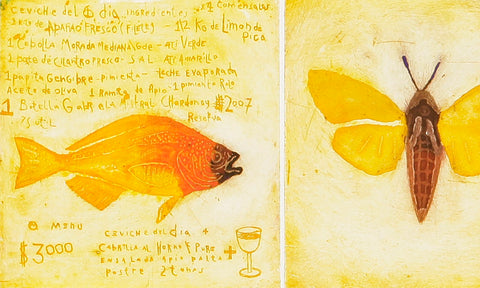 CEVICHE del dia ingredientes 4 COMENSALES
1 KILO de APAÑAO FRESCO (FILETES) - 1/2 Ko de Limon de PICA
1 Cebolla MORADA Mediana/GDE - AJI VERDE
1 pote de CILANTRO FRESCO - SAL - AJI AMARILLO
1 papita Gengibre - pimienta - LECHE EVAPORADA
Aceite de oliva 1 Ramita de Apio - 1 pimiento Rojo
1 Botella GABRIELA Mistral Chardonay $2007
75 util Reserva
MENU
$3000
CEVICHE del dia +
CABRILLA AL HORNO + PURE
ENSALADA apio palta +
postre 2 tunas